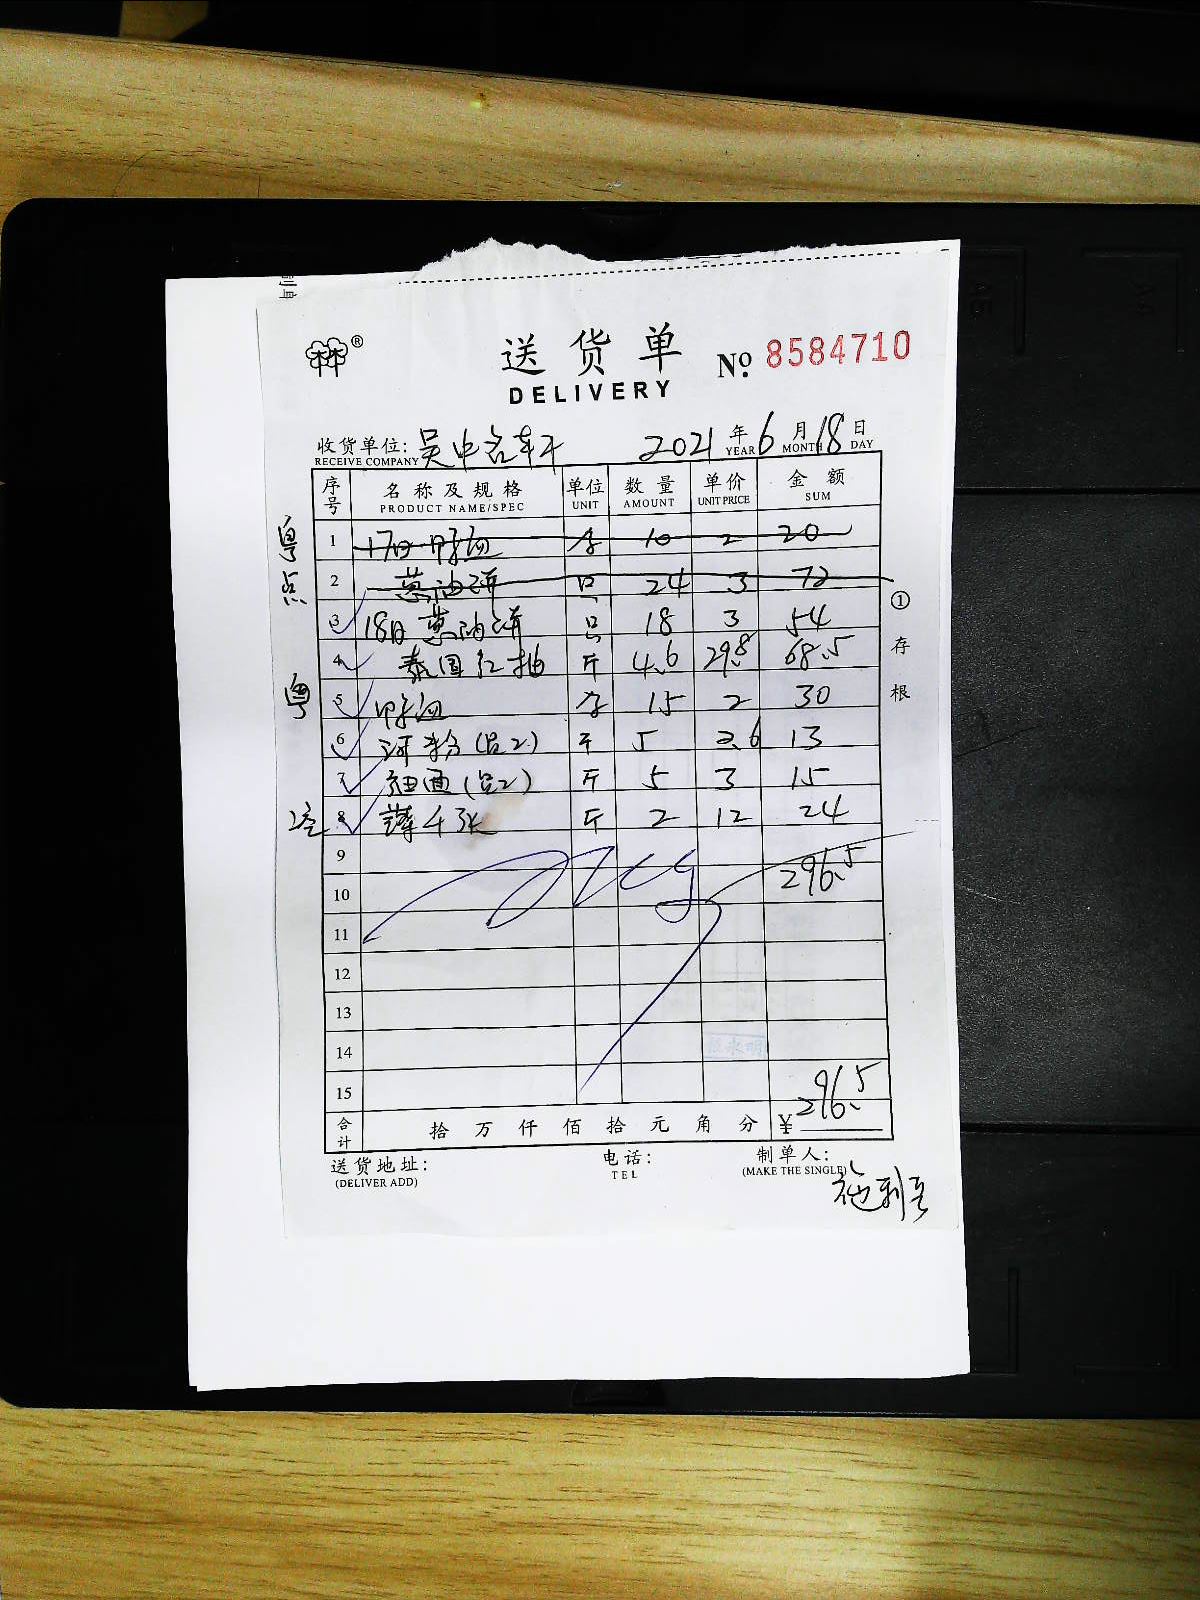 送货单 № 8584710
DELIVERY
收货单位: 吴中名轩 2021年6月18日
RECEIVE COMPANY YEAR MONTH DAY
序号 名称及规格 单位 数量 单价 金额
PRODUCT NAME/SPEC UNIT AMOUNT UNIT PRICE SUM
1 17日 鸭血 10 2 20
2 葱油饼 只 24 3 72
3 18日 葱油饼 只 18 3 54
4 泰国红柚 斤 4.6 29.8 68.5
5 鸭血 15 2 30
6 河粉(员2) 斤 5 2.6 13
7 面(员2) 斤 5 3 15
8 薄千张 斤 2 12 24
9
10 296.5
11
12
13
14
15
合计 拾万仟佰拾元角分 ¥ 296.5
送货地址: 电话: 制单人:
(DELIVER ADD) TEL (MAKE THE SINGLE)
①存根
粤点
粤